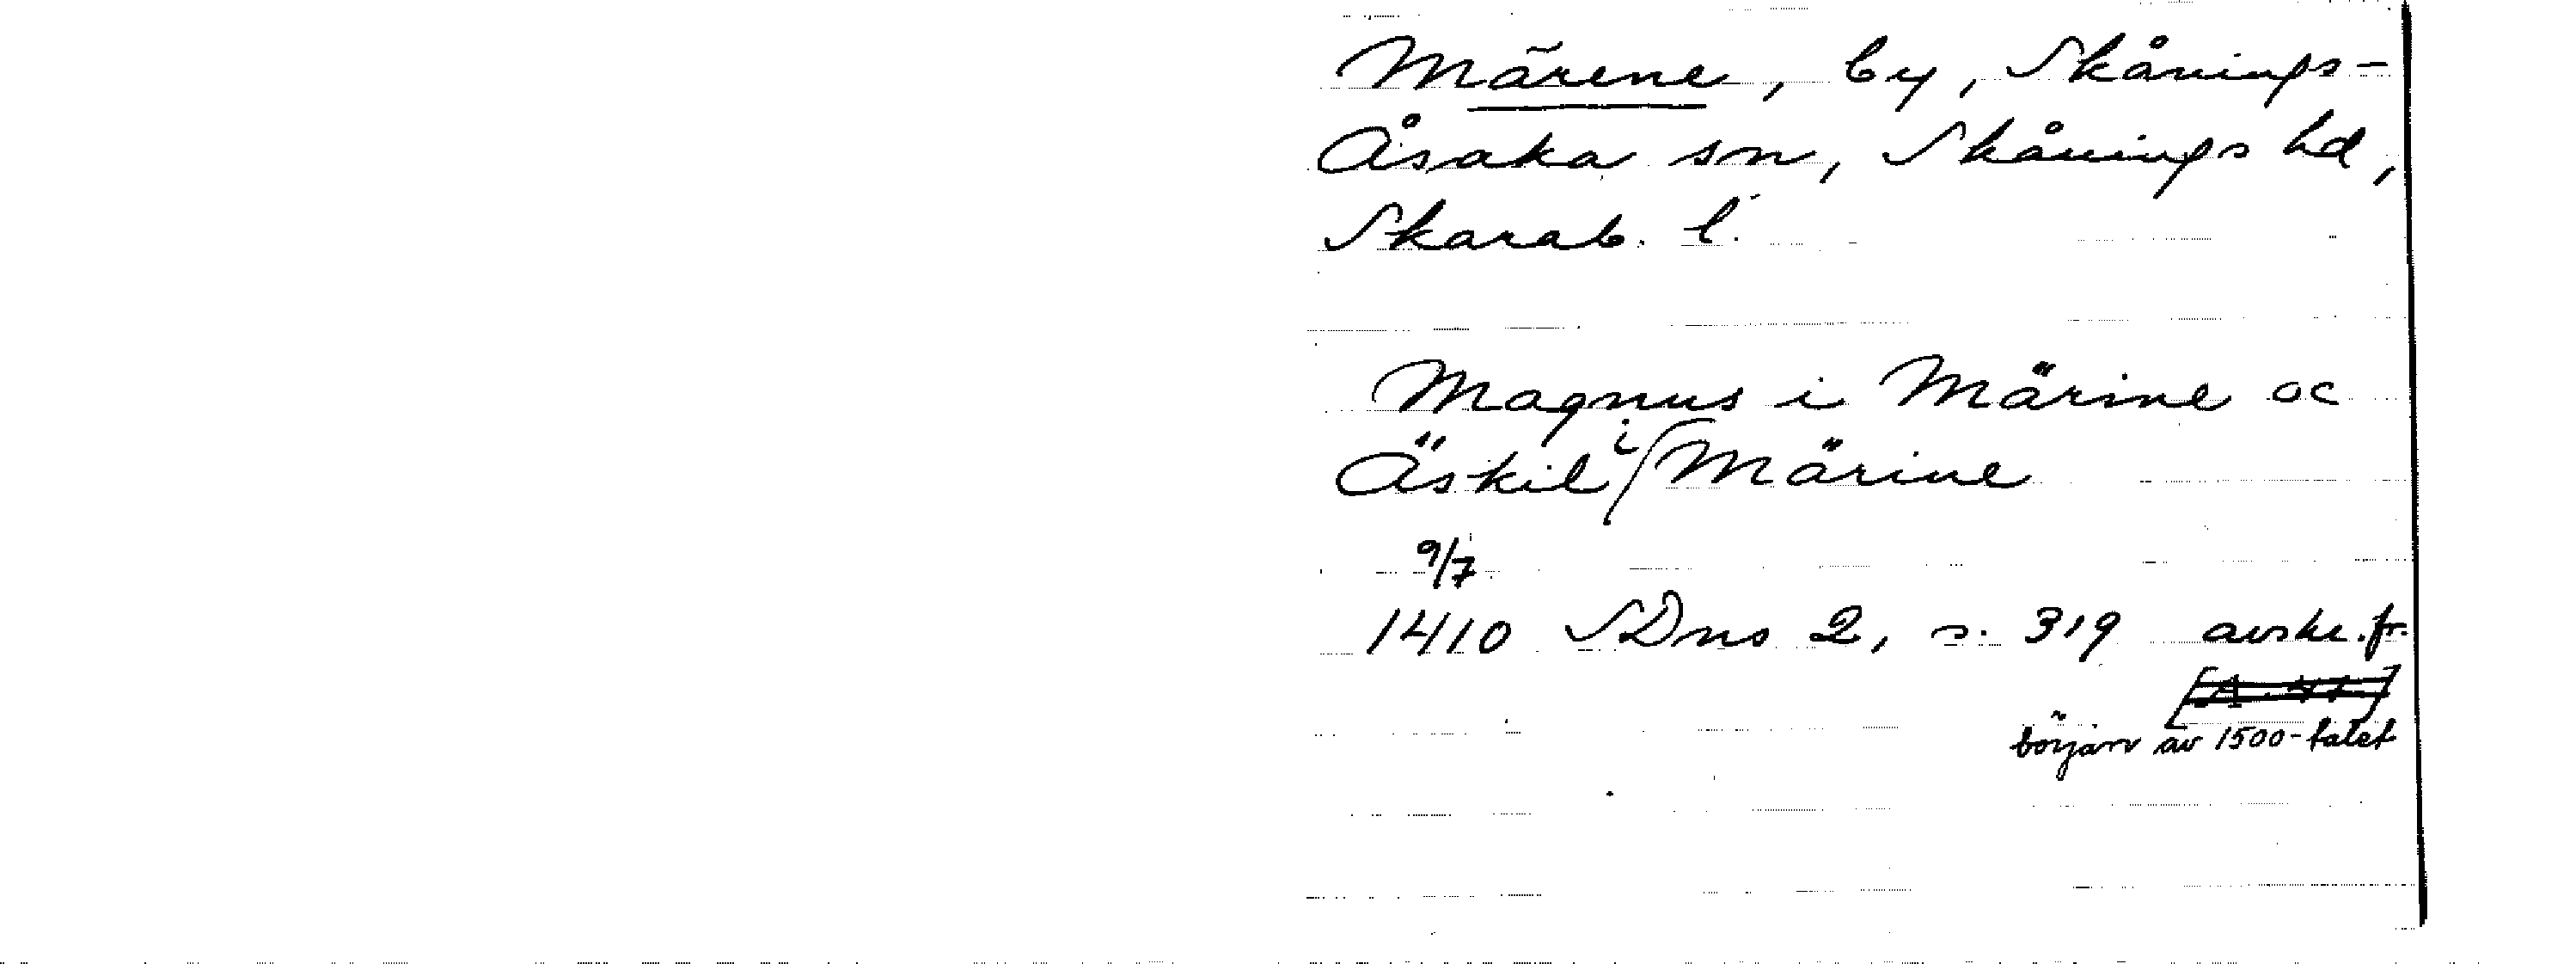 Märene, by, Skånings-
Åsaka sn, Skånings hd,
Skarab. l.
Magnus i Märine oc
Äskil i Märine
9/7
1410 SDns 2, s. 319 avskr. fr.
början av 1500-talet